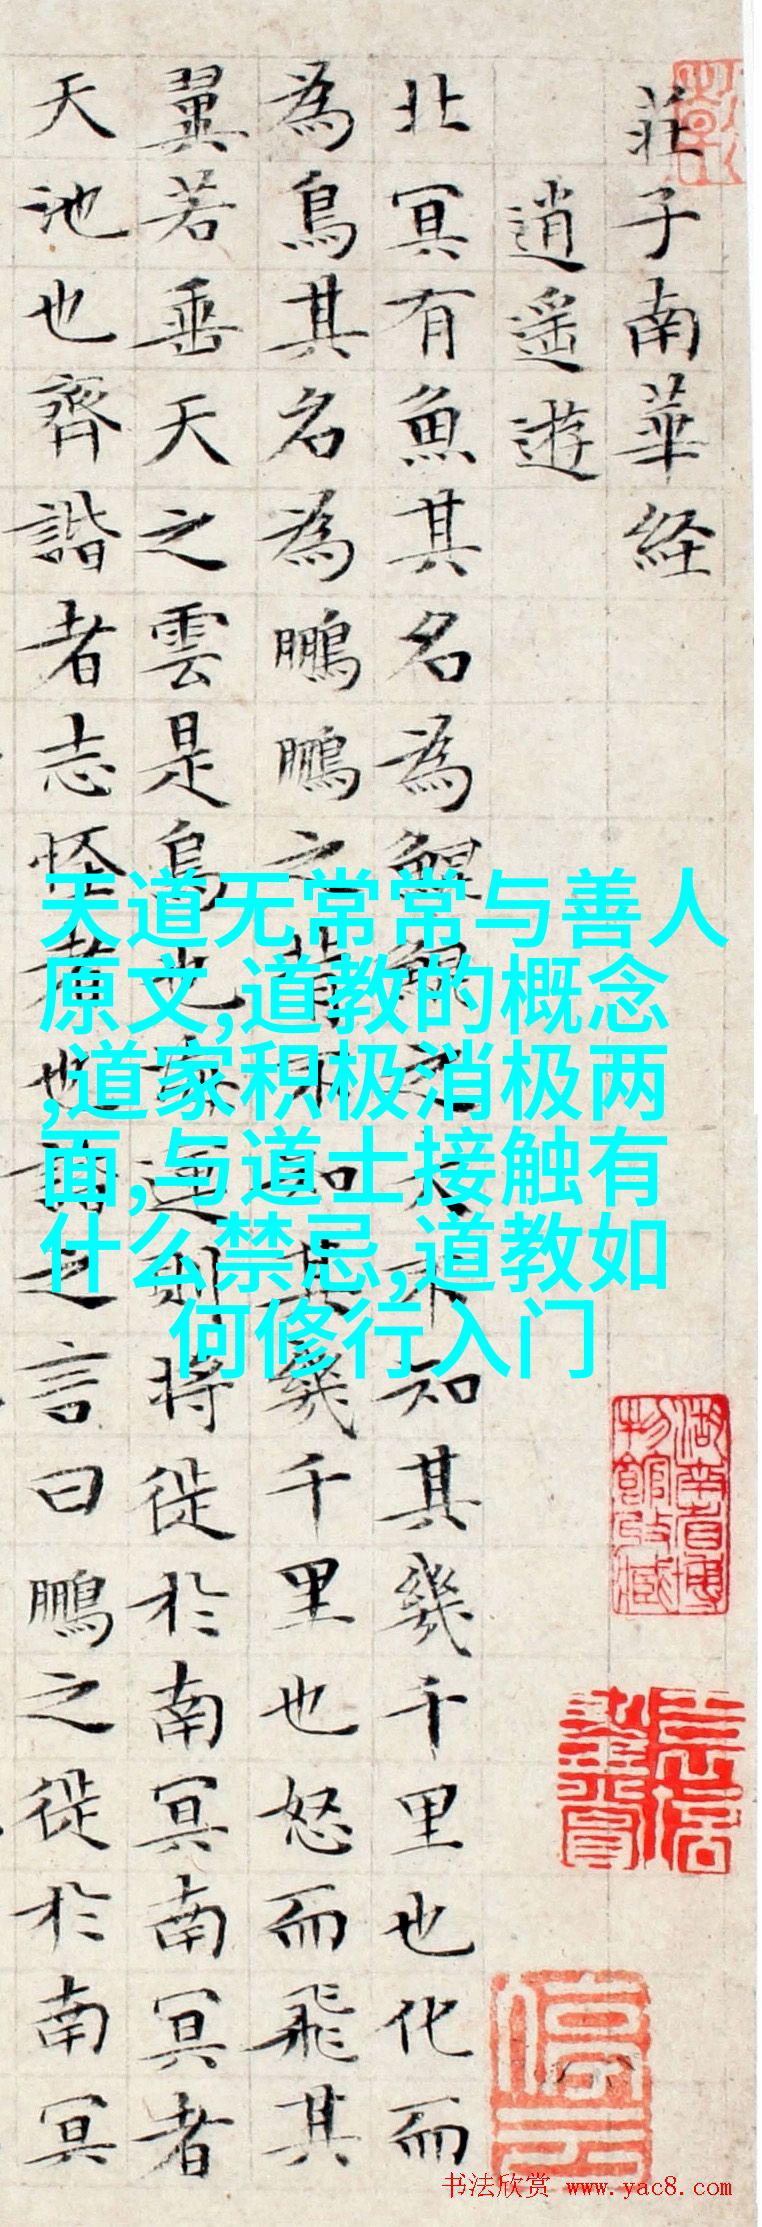 莊子南華経
逍遥遊
北冥有魚其名為鯤鯤之大不知其幾千里也化而
為鳥其名為鵬鵬之背不知其幾千里也怒而飛其
翼若垂天之雲是鳥也海運則將徙於南冥南冥者
天池也齊諧者志怪者也諧之言曰鵬之徙於南冥
天道无常常与善人
原文,道教的概念
,道家积极消极两
面,与道士接触有
什么禁忌,道教如
何修行入门
湖南省博
物館收藏
书法欣赏 www.yac8.com